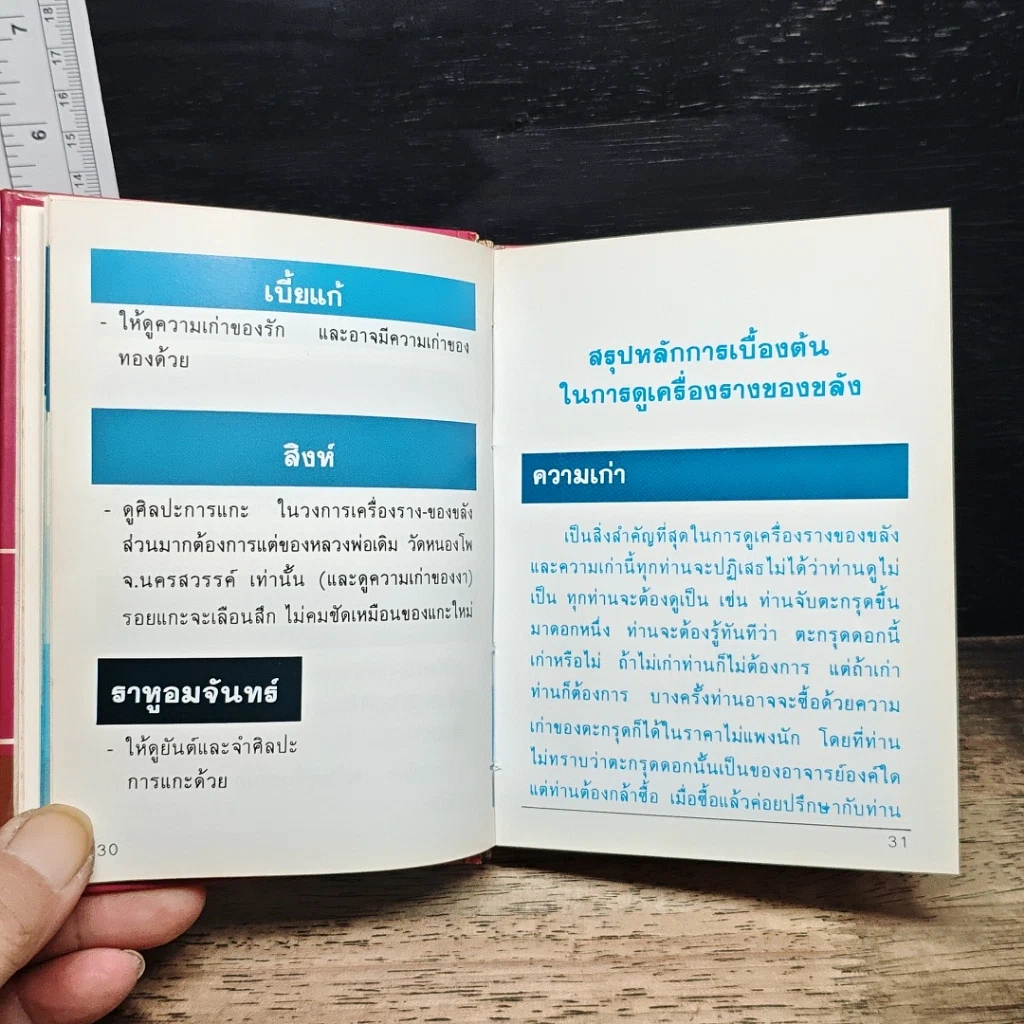 7
6
18
17
16
15
14
เบี้ยแก้
- ให้ดูความเก่าของรัก และอาจมีความเก่าของ
ทองด้วย
สิงห์
- ดูศิลปะการแกะ ในวงการเครื่องราง-ของขลัง
ส่วนมากต้องการแต่ของหลวงพ่อเดิม วัดหนองโพ
จ.นครสวรรค์ เท่านั้น (และดูความเก่าของงา)
รอยแกะจะเลือนลึก ไม่คมชัดเหมือนของแกะใหม่
ราหูอมจันทร์
- ให้ดูยันต์และจำศิลปะ
การแกะด้วย
30
สรุปหลักการเบื้องต้น
ในการดูเครื่องรางของขลัง
ความเก่า
เป็นสิ่งสำคัญที่สุดในการดูเครื่องรางของขลัง
และความเก่านี้ทุกท่านจะปฏิเสธไม่ได้ว่าท่านดูไม่
เป็น ทุกท่านจะต้องดูเป็น เช่น ท่านจับตะกรุดขึ้น
มาดอกหนึ่ง ท่านจะต้องรู้ทันทีว่า ตะกรุดดอกนี้
เก่าหรือไม่ ถ้าไม่เก่าท่านก็ไม่ต้องการ แต่ถ้าเก่า
ท่านก็ต้องการ บางครั้งท่านอาจจะซื้อด้วยความ
เก่าของตะกรุดก็ได้ในราคาไม่แพงนัก โดยที่ท่าน
ไม่ทราบว่าตะกรุดดอกนั้นเป็นของอาจารย์องค์ใด
แต่ท่านต้องกล้าซื้อ เมื่อซื้อแล้วค่อยปรึกษากับท่าน
31